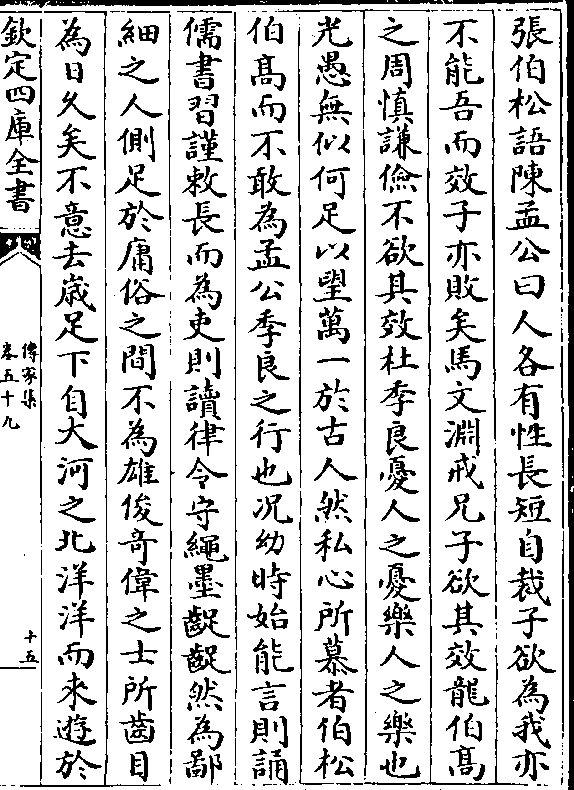 張伯松語陳孟公曰人各有性長短自裁子欲為我亦
不能吾而效子亦敗矣馬文淵戒兄子欲其效龍伯髙
之周慎謙儉不欲其效杜季良憂人之憂樂人之樂也
光愚無似何足以望萬一於古人然私心所慕者伯松
伯髙而不敢為孟公季良之行也况幼時始能言則誦
儒書習謹敕長而為吏則讀律令守繩墨齪齪然為鄙
細之人側足於庸俗之間不為雄俊竒偉之士所齒目
為日久矣不意去歳足下自大河之北洋洋而來遊於
欽定四庫全書
傳家集
卷五十九
十五